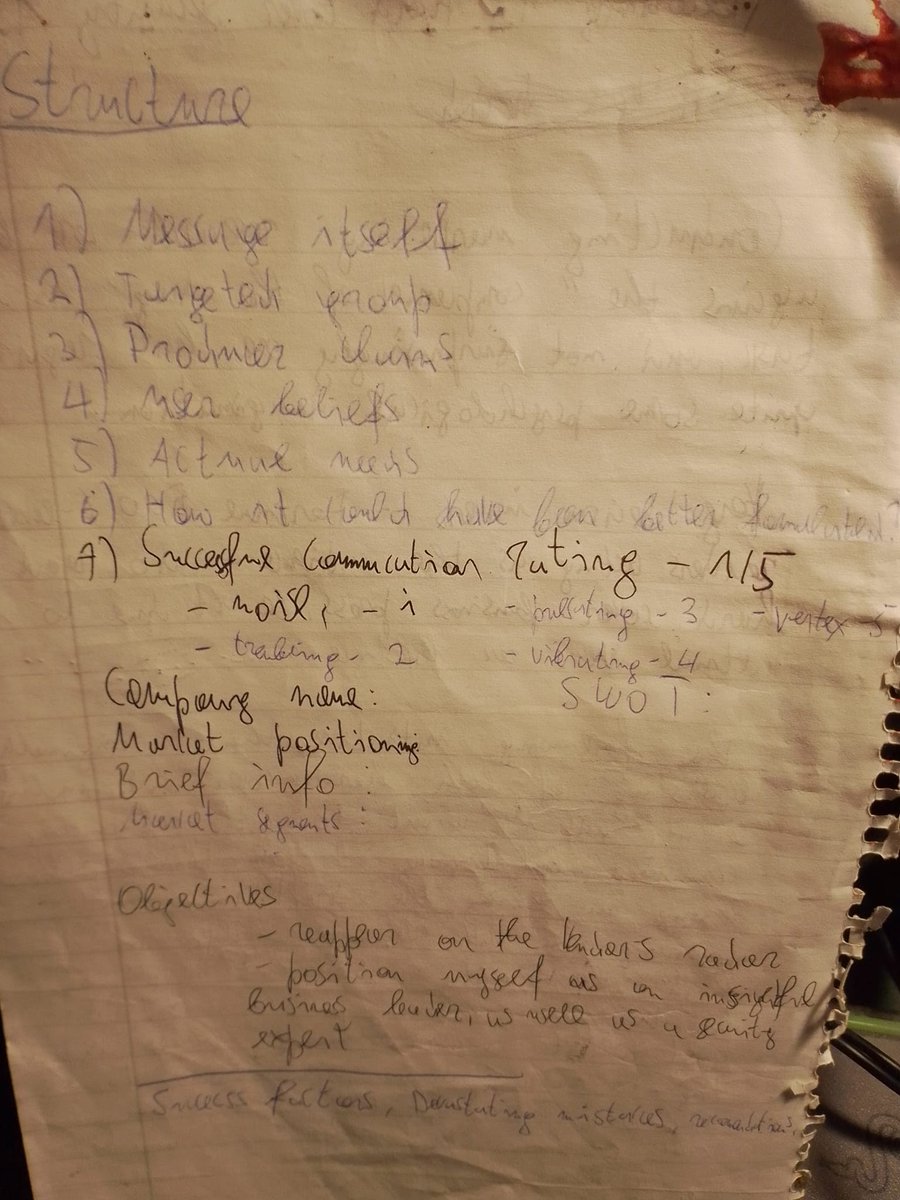 Structure
1) Message itself
2) Targeted group
3) Producer claims
4) User beliefs
5) Actual needs
6) How it could have been better formulated?
7) Successful Commucation rating - 1/5
- noise, - 1 - pulsating - 3 - vertex - 5
- trembling - 2 - vibrating - 4
Company name: SWOT:
Market positioning
Brief info:
Market segments:
Objectives
- reappear on the leader's radar
- position myself as an insightful
business leader, as well as a security
expert
Success factors, Devastating mistakes,